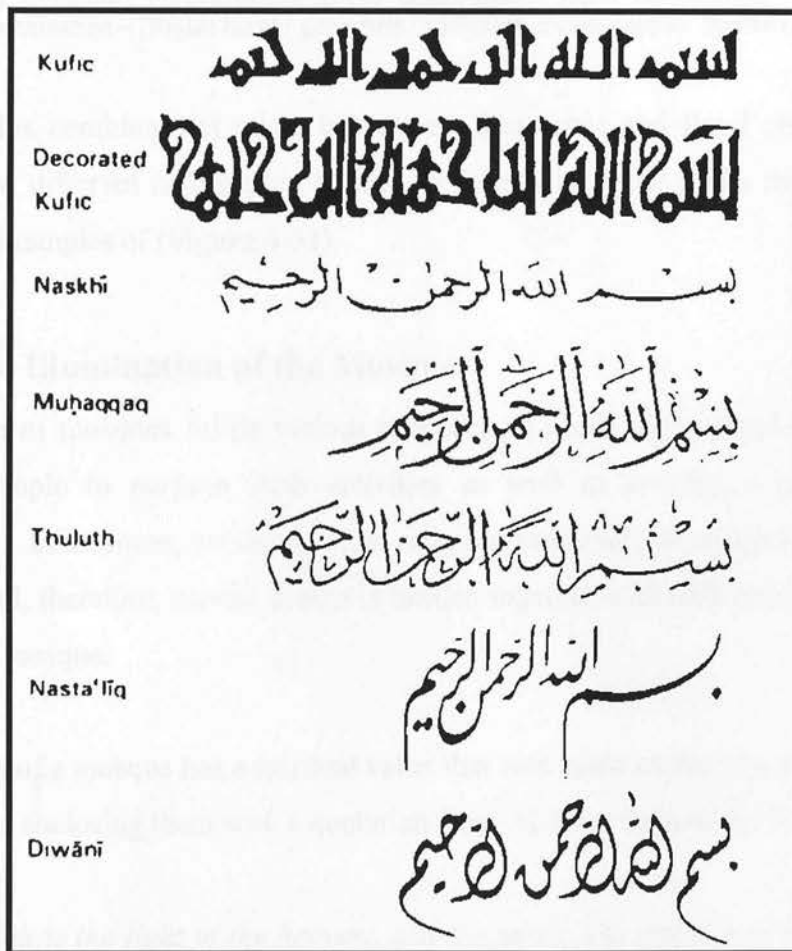 Kufic
بسم الله الرحمن الرحيم
Decorated
Kufic
بسم الله الرحمن الرحيم
Naskhī
بسم الله الرحمن الرحيم
Muḥaqqaq
بِسْمِ اللَّهِ الرَّحْمَنِ الرَّحِيمِ
Thuluth
بِسْمِ اللَّهِ الرَّحْمَنِ الرَّحِيمِ
Nasta'līq
بسم الله الرحمن الرحيم
Dīwānī
بسم الله الرحمن الرحيم
Illumination of the